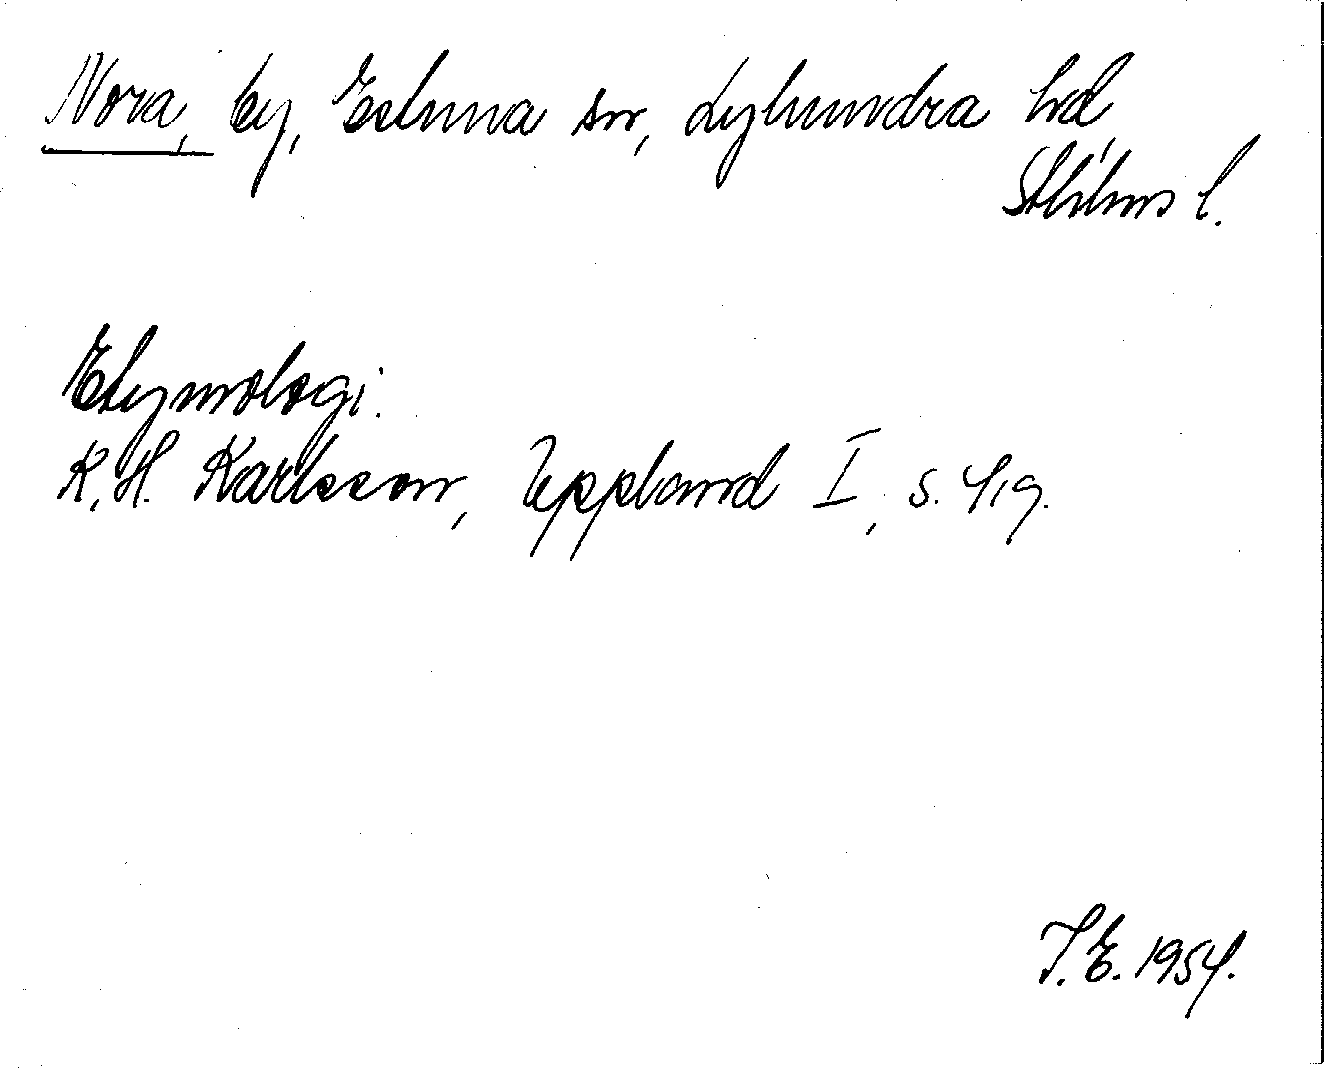 Nora, by, Estuna sn, Lyhundra hd,
Sthlms l.
Etymologi:
K.H. Karlsson, Uppland I, s. 419.
I.E. 1954.